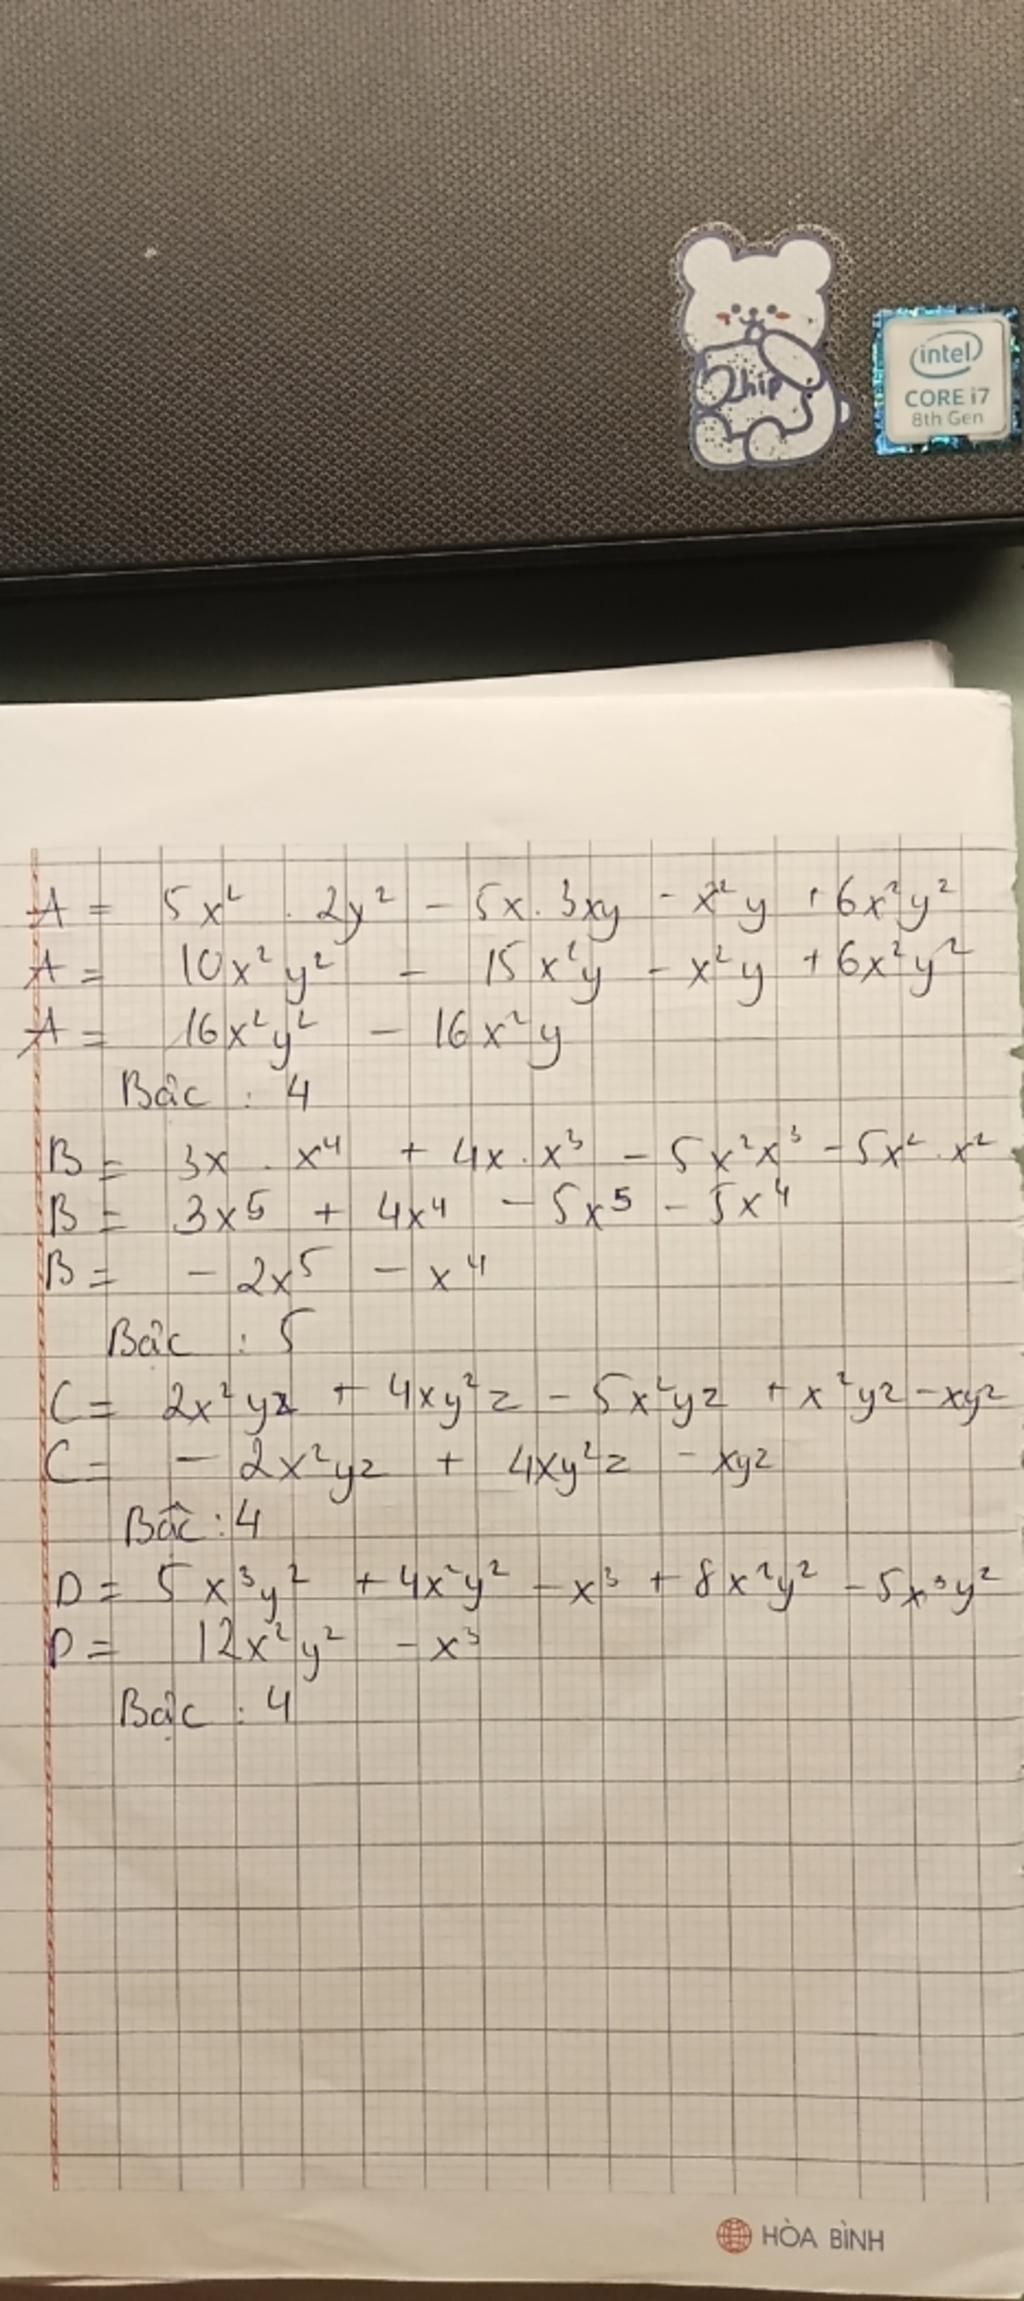 Chip
intel
CORE i7
8th Gen
A = 5x² . 2y² - 5x . 3xy - x²y + 6x²y²
A = 10x²y² - 15x²y - x²y + 6x²y²
A = 16x²y² - 16x²y
Bậc : 4
B = 3x . x⁴ + 4x . x³ - 5x²x³ - 5x² . x²
B = 3x⁵ + 4x⁴ - 5x⁵ - 5x⁴
B = - 2x⁵ - x⁴
Bậc : 5
C = 2x²yz + 4xy²z - 5x²yz + x²yz - xyz
C = - 2x²yz + 4xy²z - xyz
Bậc : 4
D = 5x³y² + 4x²y² - x³ + 8x²y² - 5x³y²
D = 12x²y² - x³
Bậc : 4
HÒA BÌNH